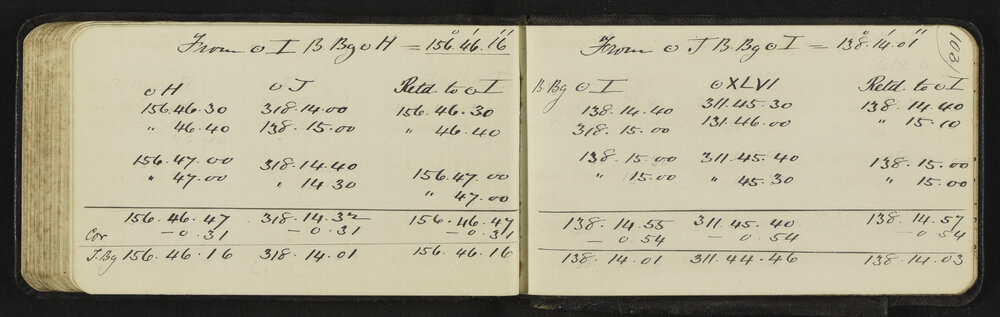 From ⊙ I B. Bg ⊙ H = 156°.46'.16"
⊙ H ⊙ J Retd. to ⊙ I
156.46.30 318.14.00 156.46.30
" 46.40 138.15.00 " 46.40
156.47.00 318.14.40 156.47.00
" 47.00 " 14.30 " 47.00
156.46.47 318.14.32 156.46.47
Cor - 0.31 - 0.31 - 0.31
T.Bg 156.46.16 318.14.01 156.46.16
103
From ⊙ J B. Bg ⊙ I = 138°.14'.01"
B.Bg ⊙ I ⊙ XLVI Retd. to ⊙ I
138.14.40 311.45.30 138.14.40
318.15.00 131.46.00 " 15.10
138.15.00 311.45.40 138.15.00
" 15.00 " 45.30 " 15.00
138.14.55 311.45.40 138.14.57
- 0.54 - 0.54 - 0.54
138.14.01 311.44.46 138.14.03